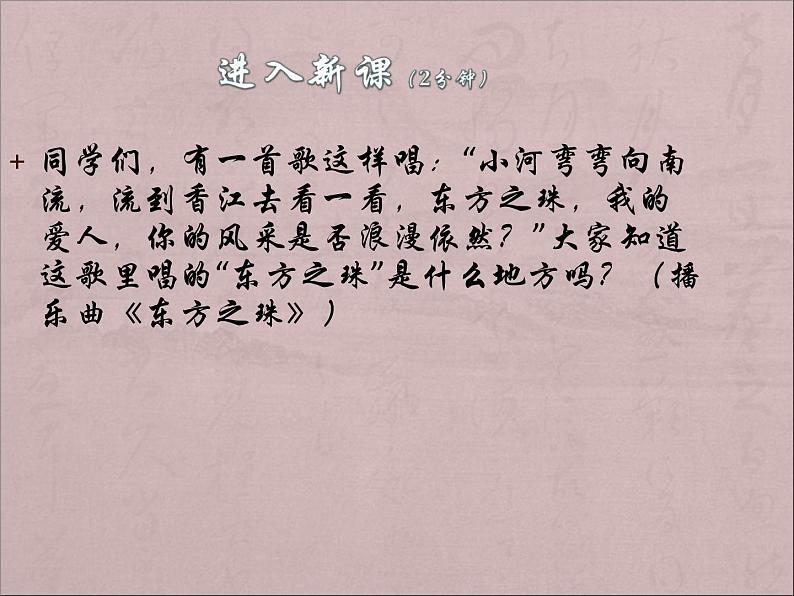 进入新课（2分钟）
+ 同学们，有一首歌这样唱：“小河弯弯向南
流，流到香江去看一看，东方之珠，我的
爱人，你的风采是否浪漫依然？”大家知道
这歌里唱的“东方之珠”是什么地方吗？（播
乐曲《东方之珠》）